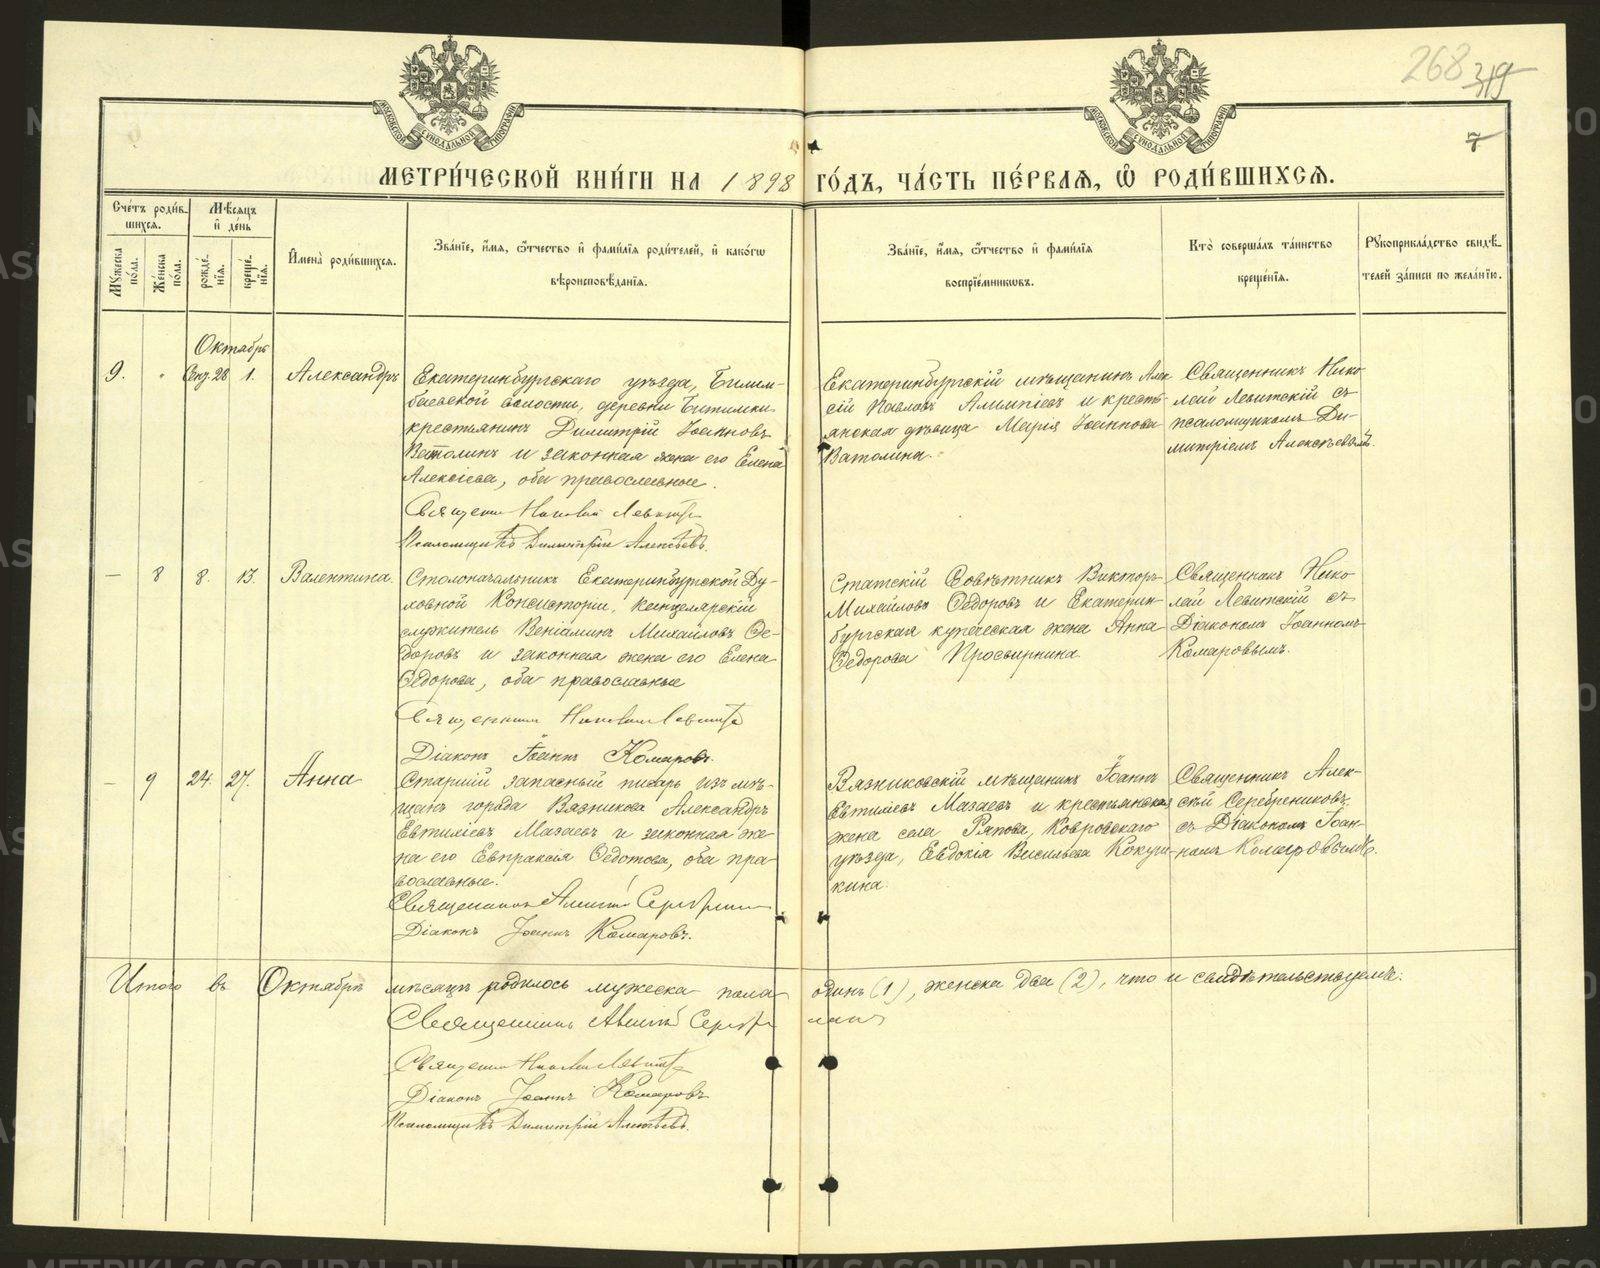 268 319
7
МОСКОВСКОЙ СѴНОДАЛЬНОЙ ТИПОГРАФІИ
МОСКОВСКОЙ СѴНОДАЛЬНОЙ ТИПОГРАФІИ
МЕТРИ́ЧЕСКОЙ КНИ́ГИ НА 1898 ГО́ДЪ, ЧА́СТЬ ПЕ́РВАЯ, Ѡ РОДИ́ВШИХСЯ.
Сче́тъ роди́в-
шихся.
Мѣ́сяцъ
и҆ де́нь
Му́жеска
по́ла.
Же́нска
по́ла.
рожде́-
нїя.
креще́-
нїя.
И҆мена̀ роди́вшихся.
Зва́нїе, и҆́мя, ѻ҆́тчество и҆ фами́лїя роди́телей, и҆ како́гѡ
вѣроисповѣ́данїя.
Зва́нїе, и҆́мя, ѻ҆́тчество и҆ фами́лїя
воспрїе́мникѡвъ.
Кто̀ соверша́лъ та́инство
креще́нїя.
Рꙋкоприкла́дство свидѣ́-
телей за́писи по жела́нїю.
Октябрь
9. " Сент. 28 1. Александръ
Екатеринбургскаго уѣзда, Билим-
баевской волости, деревни Битимки
крестьянинъ Димитрій Іоанновъ
Ватолинъ и законная жена его Елена
Алексіева, оба православные.
Священн Николай Левитск
Псаломщикъ Димитрій Алексѣевъ.
Екатеринбургскій мѣщанинъ Алек
сій Павловъ Алимпіевъ и кресть
янская дѣвица Марія Іоаннова
Ватолина.
Священникъ Нико-
лай Левитскій съ
псаломщикомъ Ди-
митріемъ Алексѣевымъ.
— 8 8. 13. Валентина.
Столоначальникъ Екатеринбургской Ду-
ховной Консисторіи, канцелярскій
служитель Веніаминъ Михайловъ Ѳе-
доровъ и законная жена его Елена
Ѳедорова, оба православные
Священникъ Николай Левитск
Діаконъ Іоаннъ Комаровъ.
Статскій Совѣтникъ Викторъ
Михайловъ Ѳедоровъ и Екатерин-
бургская купеческая жена Анна
Ѳедорова Просвирнина.
Священникъ Нико
лай Левитскій съ
Діакономъ Іоанномъ
Комаровымъ.
— 9 24. 27. Анна
Старшій запасный писарь изъ мѣ-
щанъ города Вязникова Александръ
Евтиміевъ Мазаевъ и законная же-
на его Евпраксія Ѳедотова, оба пра-
вославные.
Священникъ Алексій Серебренник
Діаконъ Іоаннъ Комаровъ.
Вязниковскій мѣщанинъ Іоаннъ
Евтиміевъ Мазаевъ и крестьянская
жена села Ряпова, Ковровскаго
уѣзда, Евдокія Васильева Кокуш-
кина.
Священникъ Алек-
сій Серебрениковъ
съ Діакономъ Іоан-
номъ Комаровымъ.
Итого въ Октябрѣ мѣсяцѣ родилось мужеска пола одинъ (1), женска два (2), что и свидѣтельствуемъ:
Священникъ Алексій Серебренник
Священн Николай Левитск
Діаконъ Іоаннъ Комаровъ
Псаломщикъ Димитрій Алексѣевъ.